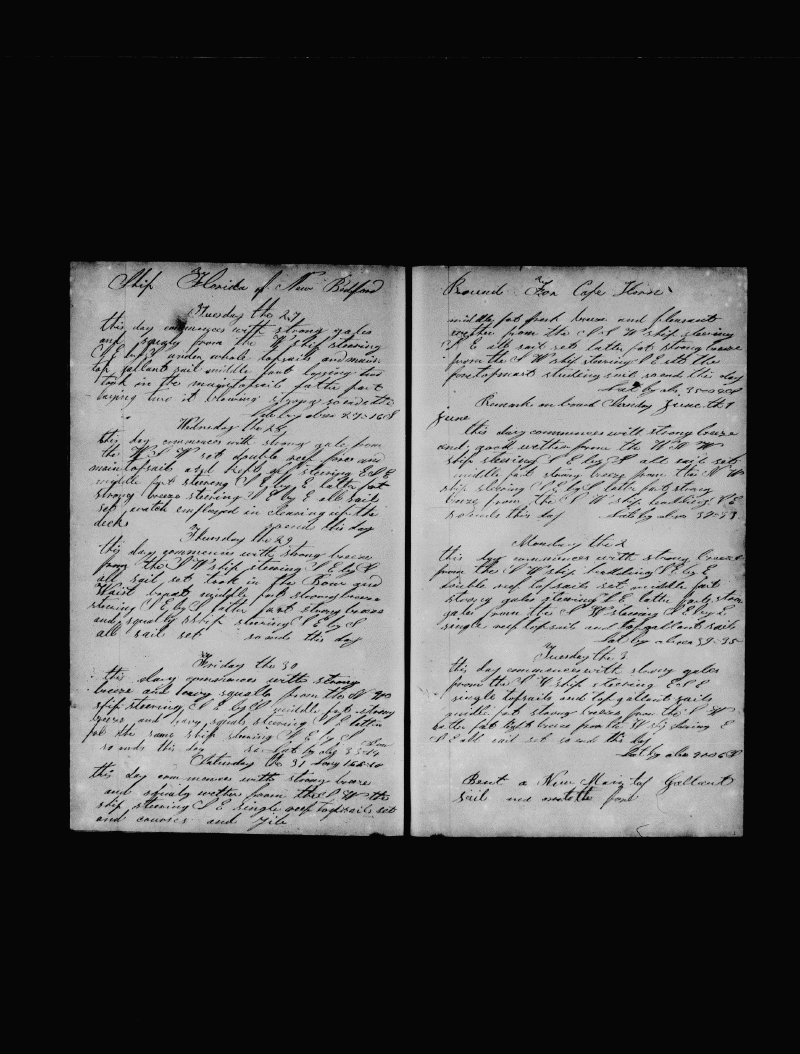 Ship Florida of New Bedford
Tuesday the 27
this day commences with strong gales
and squaly from the W ship steering
S E by S under whole topsails and main
top gallant sail middle part
took in the mainsail latter part
laying two it blowing strong so ends the
Lat by obser 27-16 S
Wednesday the 28
this day commences with strong gale from
the W S W set double reef fore and
maintopsails and kept off steering E S E
middle part steering S E by E latter part
strong breeze steering S E by E all sail
set watch employed in cleaning up the
deck so ends this day
Thursday the 29
this day commences with strong breeze
from the S W ship steering S E by S
all sail set took in the Bow and
Waist boats middle part strong breeze
steering S E by S latter part strong breeze
and squally ship steering S E by S
all sail set so ends this day
Friday the 30
this day commences with strong
breeze and heavy squalls from the N W
ship steering S E by S middle part strong
breeze and heavy squals steering S E latter
part the same ship steering S E by S
so ends this day Lat by obs 33-44
Saturday the 31
this day commences with strong breeze
and squaly wether from the S W the
ship steering S E single reef topsails set
and courses and Jib
Bound For Cape Horn
middle part fresh breeze and pleasant
wether from the S S W ship steering
S E all sail set latter part strong breeze
from the S W ship steering S E sets the
foretopmast studing sail so ends this day
Lat by obs
Remarks on board Sunday June the 1
June
this day commences with strong breeze
and good wether from the W N W
ship steering S E by S all sail set
middle part strong breeze from the N W
ship steering S E by S latter part strong
breeze from the S W ship heading S E
so ends this day Lat by obser 37-33
Monday the 2
this day commences with strong breeze
from the S W ship heading S E by E
double reef topsails set middle part
strong gales steering S E latter part strong
gales from the S W steering S E by E
single reef topsail and top gallant sails
Lat by obser 39-35
Tuesday the 3
this day commences with strong gales
from the S W ship steering E S E
single topsails and top gallant sails
middle part strong breeze from the S W
latter part light breeze from the W ship steering E
S E all sail set so ends this day
Lat by obser 40-06 S
Bent a New Main top Gallant
sail and